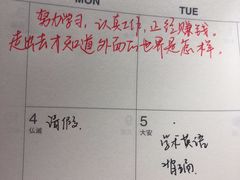 MON
TUE
努力学习，认真工作，正经赚钱。
走出去才知道外面的世界是怎样。
4
仏滅
请假
5
大安
学术英语